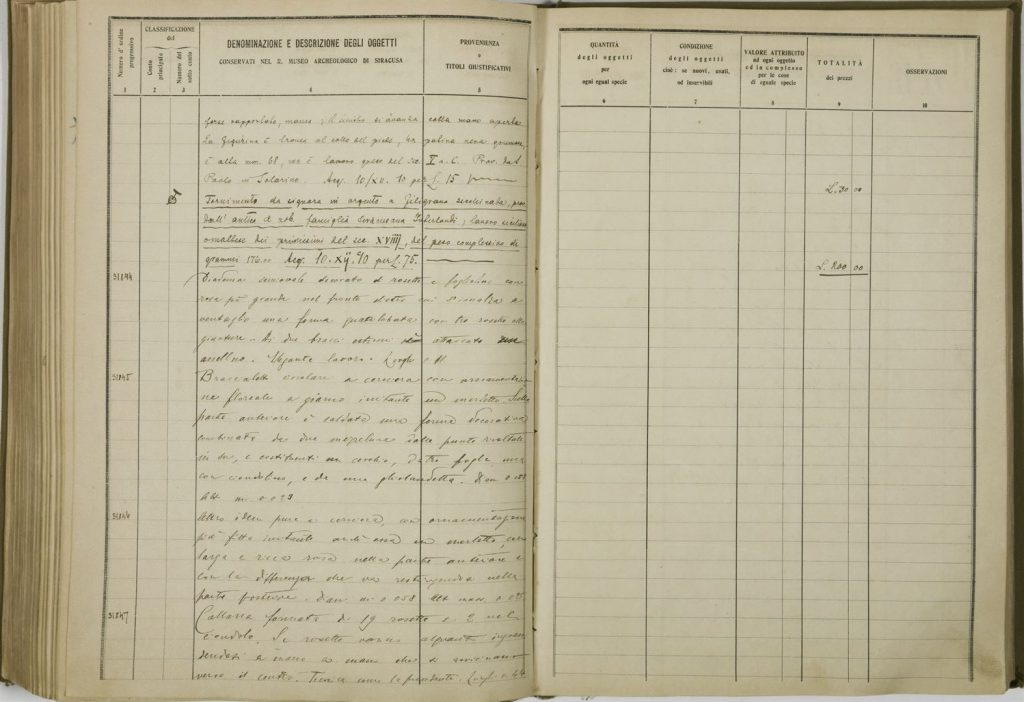 Numero d'ordine progressivo
CLASSIFICAZIONE del
Conto principale
Numero del sotto conto
DENOMINAZIONE E DESCRIZIONE DEGLI OGGETTI
CONSERVATI NEL R. MUSEO ARCHEOLOGICO DI SIRACUSA
PROVENIENZA
o
TITOLI GIUSTIFICATIVI
1 2 3 4 5
forse rapportato, manca; il sinistro si avanza colla mano aperta
La figurina è tronca al collo del piede, ha patina nera grumosa,
è alta mm. 68, ed è lavoro greco del sec. I a. C. Prov. da S.
Paolo in Solarino. Acq. 10/XII. 10 per L. 15
Fornimento da signora in argento a filigrana
dall' antica e nob. famiglia siracusana lavoro siciliano
o maltese dei primissimi del sec. XVIIII, del peso complessivo di
grammi 176.00 Acq. 10. XII. 10 per L. 75.
31844
Diadema semiovale decorato di rosette e foglioline con
rosa più grande nel fronte dietro cui s'innalza a
ventaglio una forma quadrilobata con tre rosette alle
giunture. Ai due bracci estremi attaccato
anellino. Elegante lavoro.
31845
Braccialetto a cerniera con ornamentazio
ne floreale a giorno imitante un merletto. Sulla
parte anteriore è saldata una forma decorativa
combinata da due dalle punte rivoltate
in su, e costituenti un cerchio, da tre foglie, una
con ciondolino, e da una ghirlandetta. Diam 0.058
Alt m. 0.029
31846
Altro idem pure a cerniera, con ornamentazione
più fitta imitante anch'essa un merletto, con
larga e ricca rosa nella parte anteriore e
con la differenza che va restringendosi nella
parte posteriore. Diam. m. 0.058 Alt mass. 0.035
31847
Collana formata di 19 rosette e 2 nel
ciondolo. Le rosette vanno alquanto
a mano a mano che si avvicinano
verso il centro.
QUANTITÀ
degli oggetti
per
ogni egual specie
CONDIZIONE
degli oggetti
cioè: se nuovi, usati,
od inservibili
VALORE ATTRIBUITO
ad ogni oggetto
ed in complesso
per le cose
di eguale specie
TOTALITÀ
dei prezzi
OSSERVAZIONI
6 7 8 9 10
L. 30 00
L. 200 00